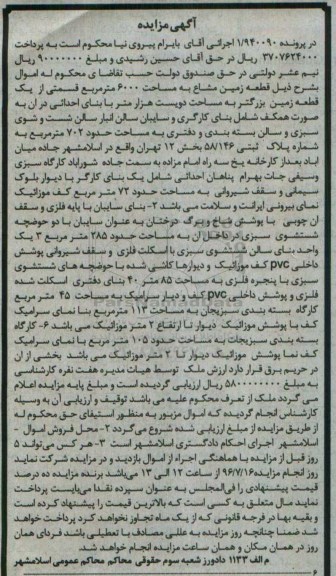 آگهی مزایده
در پرونده ۱/۹۴۰۰۹۰ اجرائی آقای بایرام پیروی نیا محکوم است به پرداخت
۳۷۰۷۶۲۴۰۰۰ ریال در حق آقای حسین رشیدی و مبلغ ۹۰۰۰۰۰۰۰ ریال
نیم عشر دولتی در حق صندوق دولت حسب تقاضای محکوم له اموال
بشرح ذیل قطعه زمین مشاع به مساحت ۶۰۰۰ مترمربع قسمتی از یک
قطعه زمین بزرگتر به مساحت دویست هزار متر با بنای احداثی در آن به
صورت همکف شامل بنای کارگری و سایبان سالن انبار سالن شست و شوی
سبزی و سالن بسته بندی و دفتری به مساحت حدود ۷۰۲ مترمربع به
شماره پلاک ثبتی ۵۸/۱۴۶ بخش ۱۲ تهران واقع در اسلامشهر جاده میان
آباد بعداز کارخانه یخ سه راه امام زاده به سمت جاده شوراباد کارگاه سبزی
وسیفی جات بهرام پناهان احداثی شامل یک بنای کارگر با دیوار بلوک
سیمانی و سقف شیروانی به مساحت حدود ۷۲ متر مربع کف موزائیک
نمای بیرونی ایرانت و سلامت می باشد ۲- بنای سایبان با پایه فلزی و سقف
آن چوبی با پوشش شاخ وبرگ درختان به عنوان سایبان با دو حوضچه
شستشوی سبزی در داخل آن به مساحت حدود ۲۸۵ متر مربع ۳ یک
واحد بنای سالن شستشوی سبزی با اسکلت فلزی و سقف شیروانی پوشش
داخلی pvc کف موزائیک و دیوارها کاشی شده با حوضچه های شستشوی
سبزی با پنجره فلزی به مساحت ۸۵ متر ۴۰ بنای دفتری اسکلت شده
فلزی و پوشش داخلی pvc کف و دیوار سرامیک به مساحت ۴۵ متر مربع
کارگاه بسته بندی سبزیجان به مساحت ۱۱۳ مترمربع بنا نمای سرامیک
کف با پوشش موزائیک دیوار تا ارتفاع ۲ متر موزائیک می باشد ۶- کارگاه
بسته بندی سبزیجات به مساحت حدود ۱۰۵ متر مربع با نمای سرامیک
کف نما پوشش موزائیک دیوار تا ۲ متر موزائیک می باشد بخشی از آن
در حریم برق قرار دارد ارزش ملک توسط هیات مدیره هفت نفره کارشناسی
به مبلغ ۵۸۰۰۰۰۰۰۰۰ ریال ارزیابی گردیده است و مبلغ پایه مزایده اعلام
می گردد ملک از تصرف محکوم علیه می باشد توقیف و ارزیابی آن به وسیله
کارشناس انجام گردیده که اموال مزبور به منظور استیفای حق محکوم له
از طریق مزایده از مبلغ ارزیابی شده شروع می گردد ۲- محل فروش اموال
اسلامشهر اجرای احکام دادگستری اسلامشهر است ۳- هر کس می تواند ۵
روز قبل از مزایده با هماهنگی اجراء از اموال بازدید و در مزایده شرکت نماید
روز انجام مزایده ۹۶/۷/۱۶ از ساعت ۱۲ الی ۱۳ می باشد برنده مزایده ده درصد
قیمت پیشنهادی را فی المجلس به عنوان سپرده نقدا می بایست پرداخت
نماید مال متعلق به کسی است که بالاترین قیمت را پیشنهاد کرده است
و بقیه بها در فرجه قانونی که از یک ماه تجاوز نخواهد کرد پرداخت خواهد
شد ضمنا چنانچه روز مزایده به عللی مصادف با تعطیلی باشد فردای همان
روز در همان مکان و همان ساعت مزایده انجام خواهد شد.
م الف ۱۱۳۳ دادورز شعبه سوم حقوقی محاکم محاکم عمومی اسلامشهر